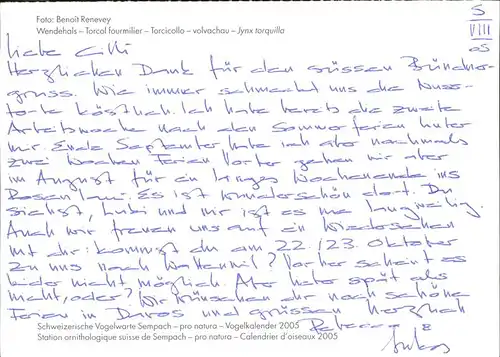 Foto: Benoît Renevey
Wendehals – Torcol fourmilier – Torcicollo – volvachau – Jynx torquilla
5
VIII
05
Liebe Cilli
Herzlichen Dank für den süssen Bündner-
gruss. Wie immer schmeckt uns die Nuss-
torte köstlich. Ich habe bereits die zweite
Arbeitswoche nach den Sommerferien hinter
mir. Ende September habe ich aber nochmals
zwei Wochen Ferien. Vorher gehen wir aber
im August für ein langes Wochenende ins
Es ist wunderschön dort. Du
siehst, Lukas und mir ist es nie langweilig.
Auch wir freuen uns auf ein Wiedersehen
mit dir: kommst du am 22./23. Oktober
zu uns nach Wattenwil? Vorher scheint es
leider nicht möglich. Aber lieber spät als
nicht, oder? Wir wünschen dir noch schöne
Ferien in Davos und grüssen herzlich
Schweizerische Vogelwarte Sempach – pro natura – Vogelkalender 2005
Rebecca &
Station ornithologique suisse de Sempach – pro natura – Calendrier d'oiseaux 2005
Lukas